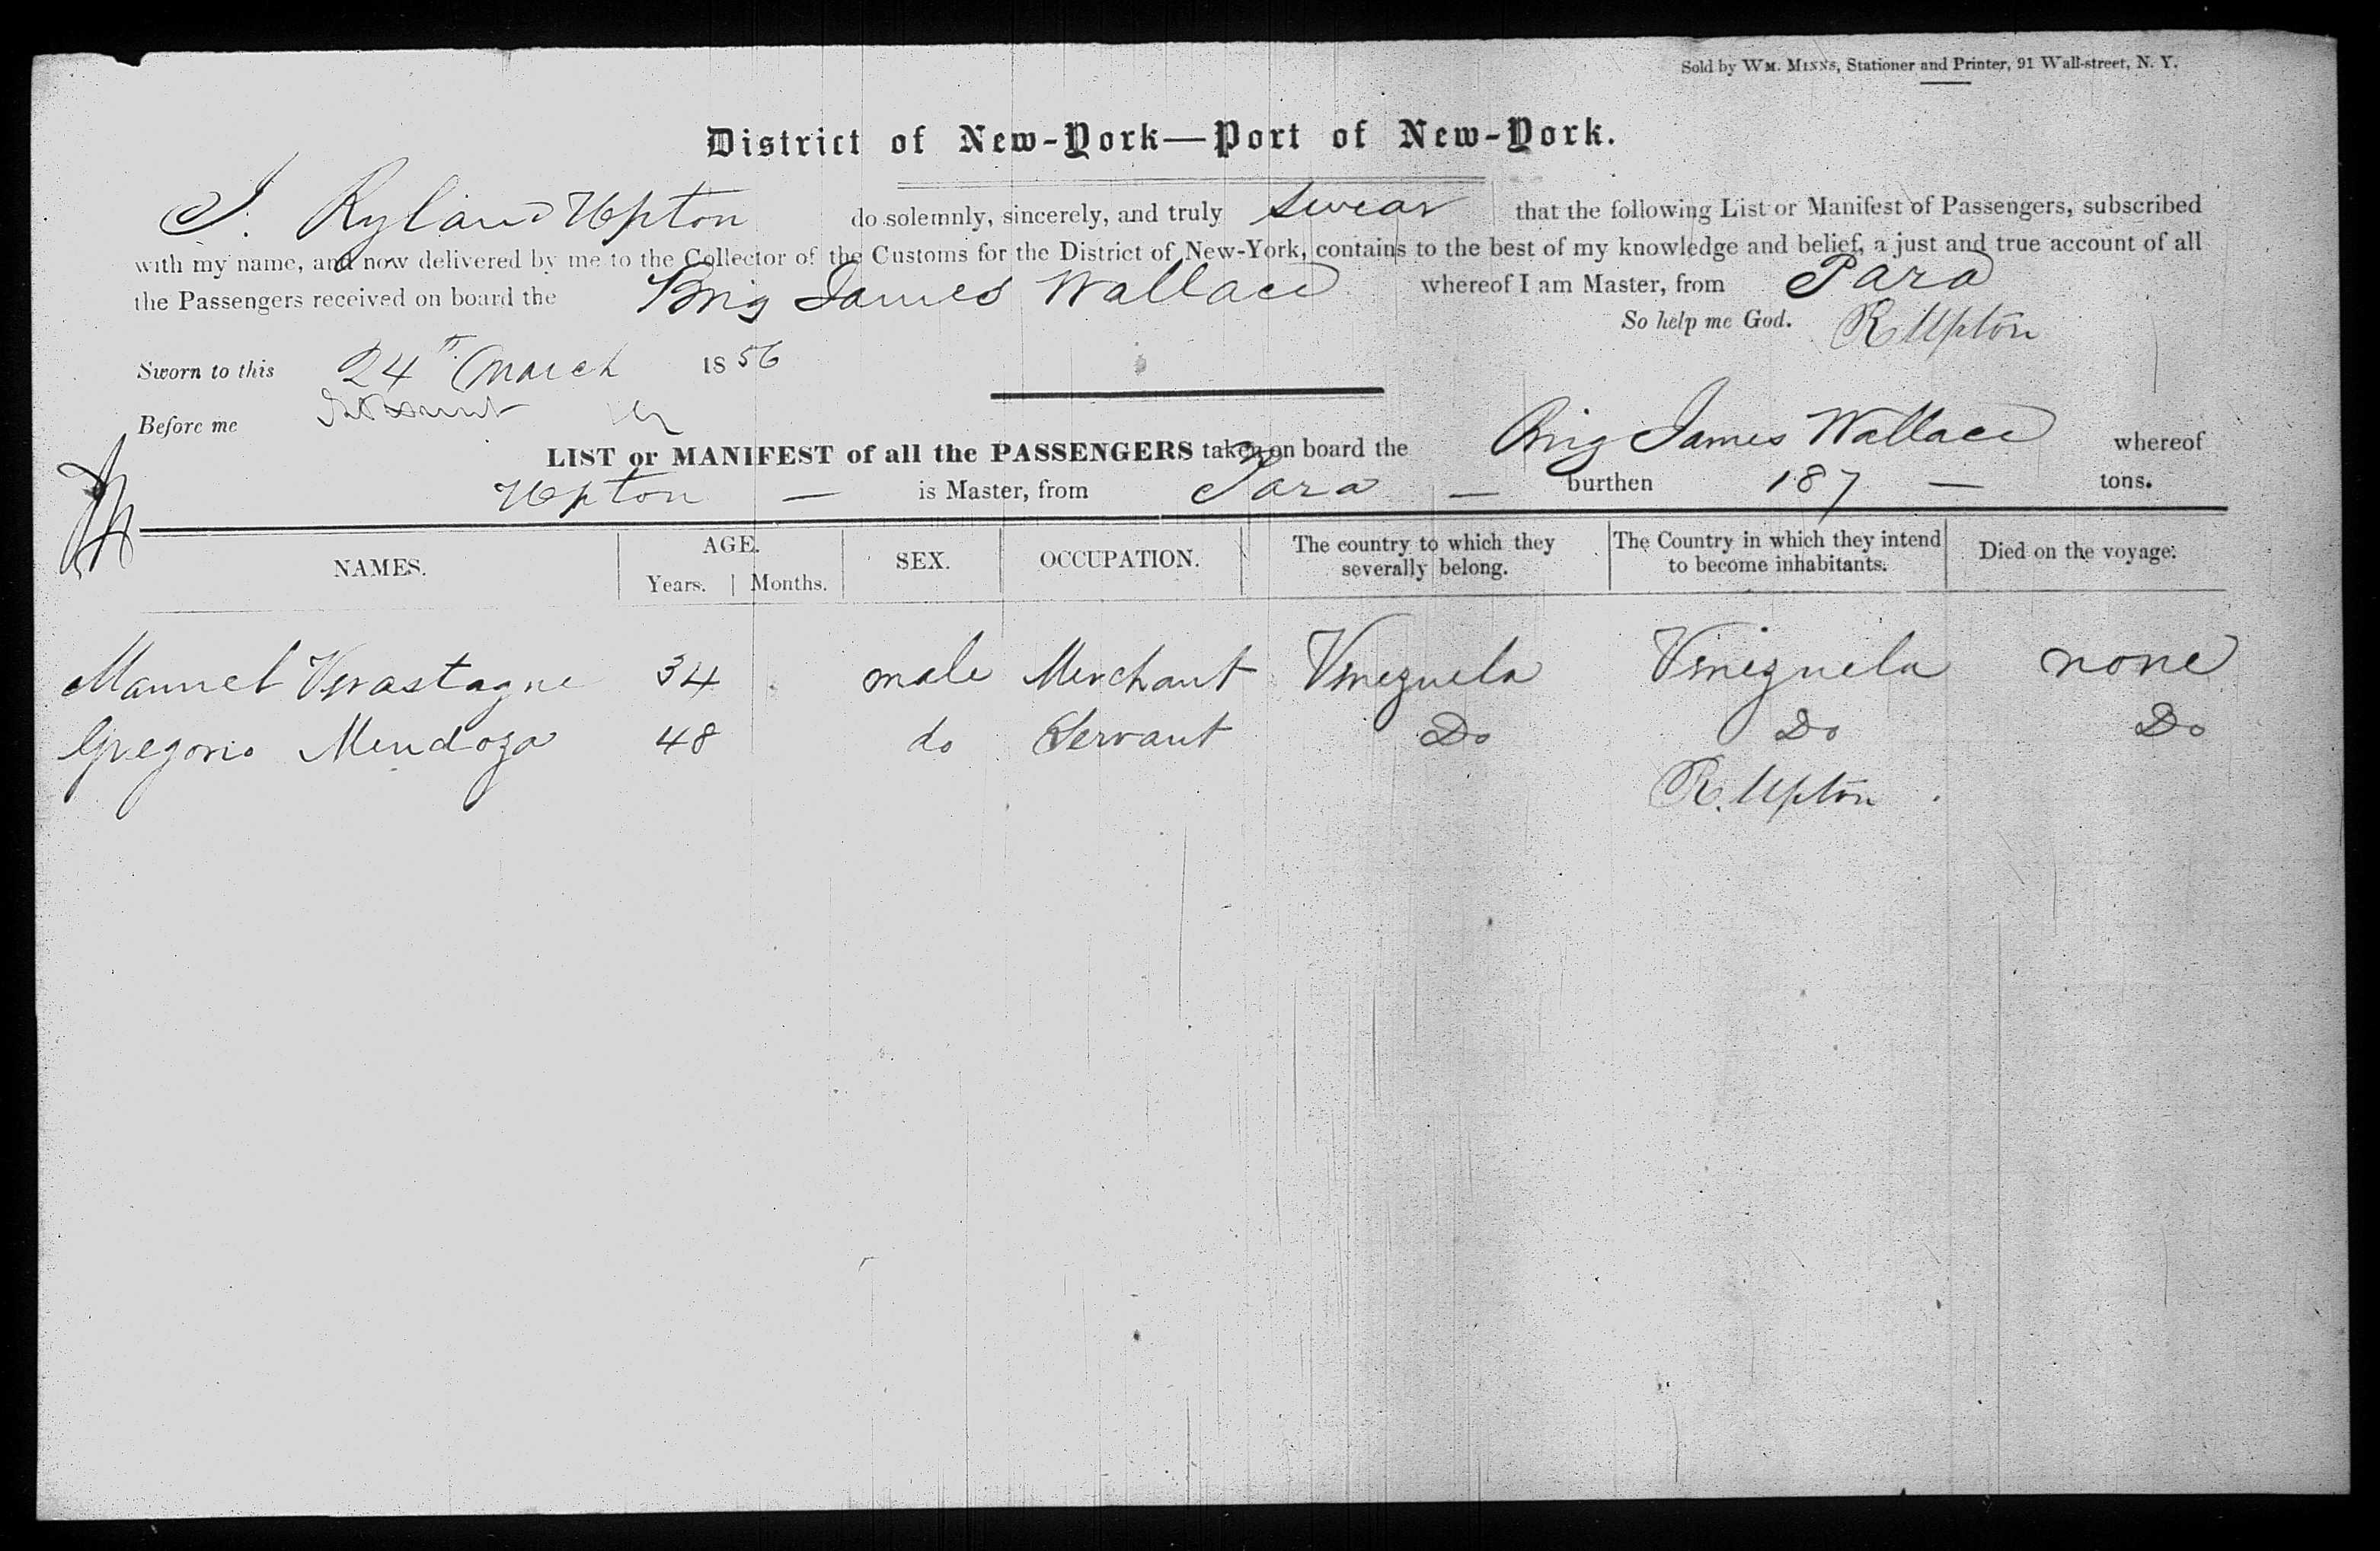 Sold by WM. MINNS, Stationer and Printer, 91 Wall-street, N. Y.
District of New-York—Port of New-York.
I. Ryland Upton do solemnly, sincerely, and truly swear that the following List or Manifest of Passengers, subscribed
with my name, and now delivered by me to the Collector of the Customs for the District of New-York, contains to the best of my knowledge and belief, a just and true account of all
the Passengers received on board the Brig James Wallace whereof I am Master, from Para
So help me God. R Upton
Sworn to this 24th March 1856
Before me
LIST or MANIFEST of all the PASSENGERS taken on board the Brig James Wallace whereof
Upton — is Master, from Para — burthen 187 — tons.
NAMES. AGE. Years. Months. SEX. OCCUPATION. The country to which they severally belong. The Country in which they intend to become inhabitants. Died on the voyage.
Manuel Verastague 34 male Merchant Venezuela Venezuela none
Gregorio Mendoza 48 do Servant Do Do Do
R. Upton